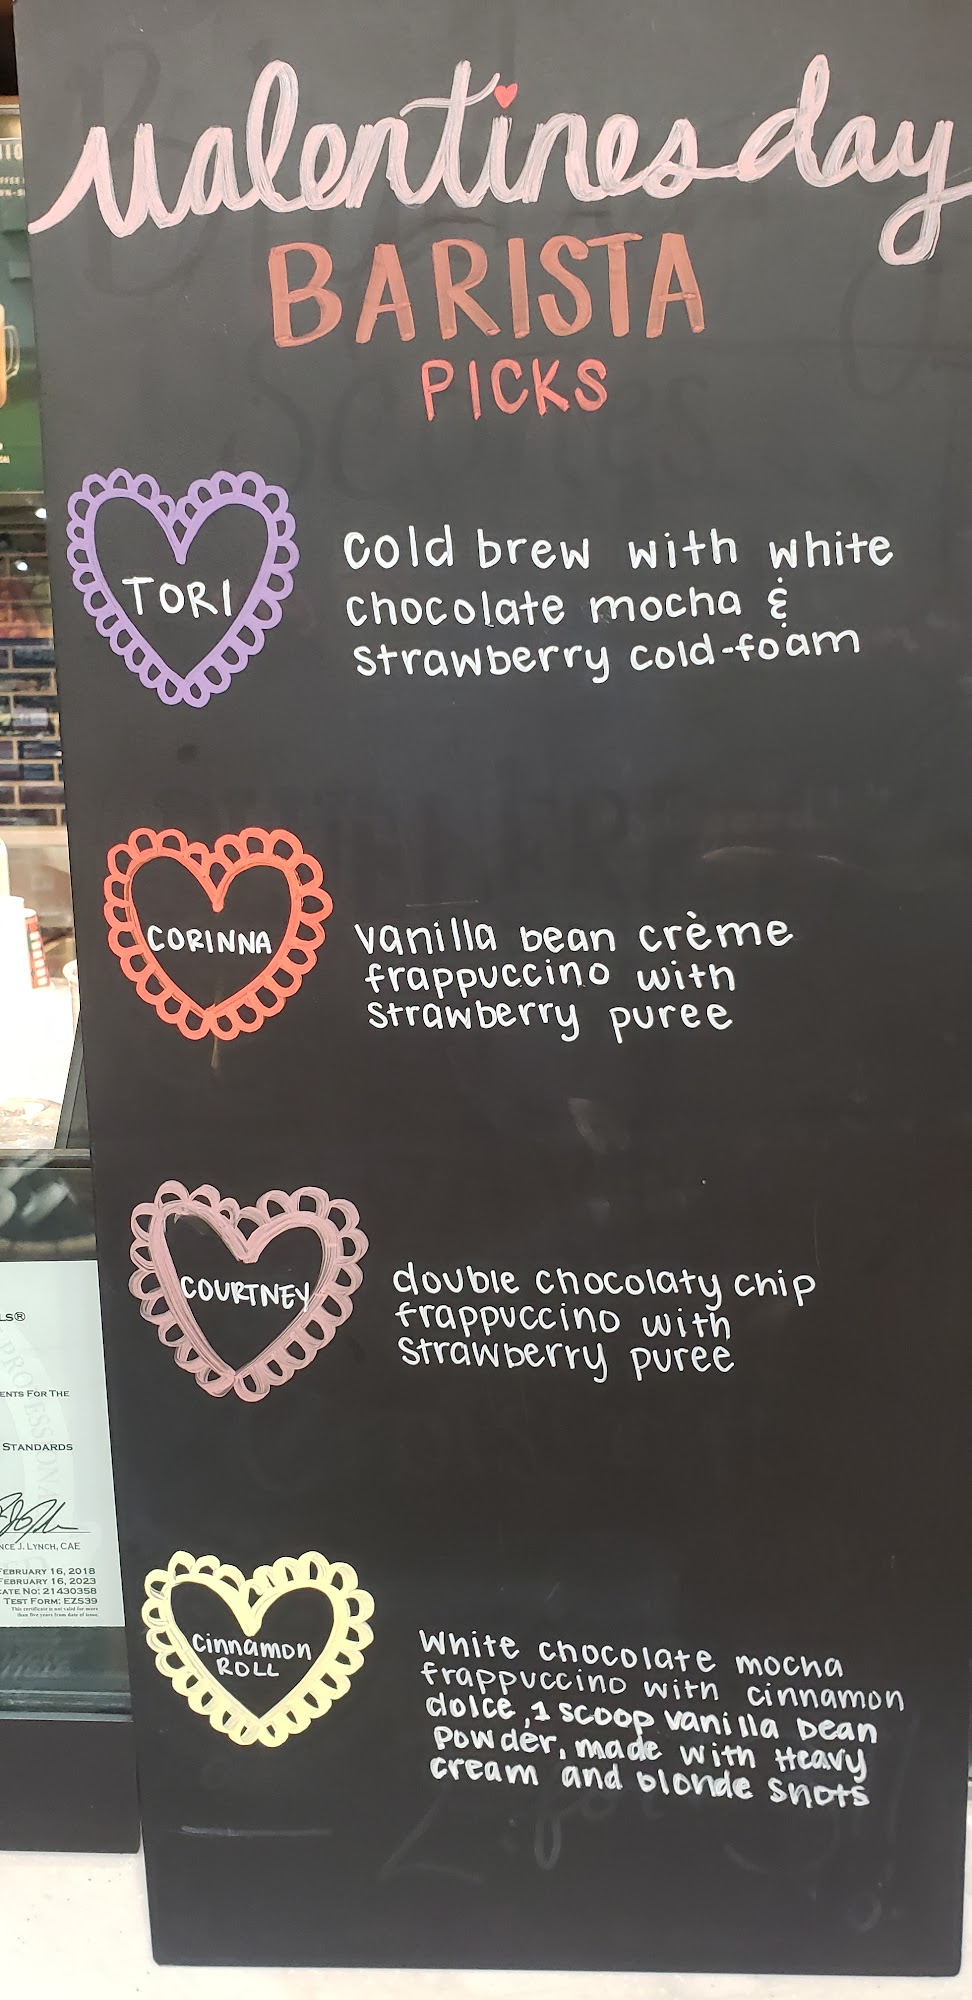 Valentines day
BARISTA
PICKS
TORI
cold brew with white
chocolate mocha &
strawberry cold-foam
CORINNA
vanilla bean crème
frappuccino with
strawberry puree
COURTNEY
double chocolaty chip
frappuccino with
strawberry puree
cinnamon
ROLL
white chocolate mocha
frappuccino with cinnamon
dolce, 1 scoop vanilla bean
powder, made with Heavy
cream and blonde shots
LS®
ENTS FOR THE
STANDARDS
NCE J. LYNCH, CAE
FEBRUARY 16, 2018
FEBRUARY 16, 2023
CATE NO: 21430358
TEST FORM: EZS39
This certificate is not valid for more
than five years from date of issue.